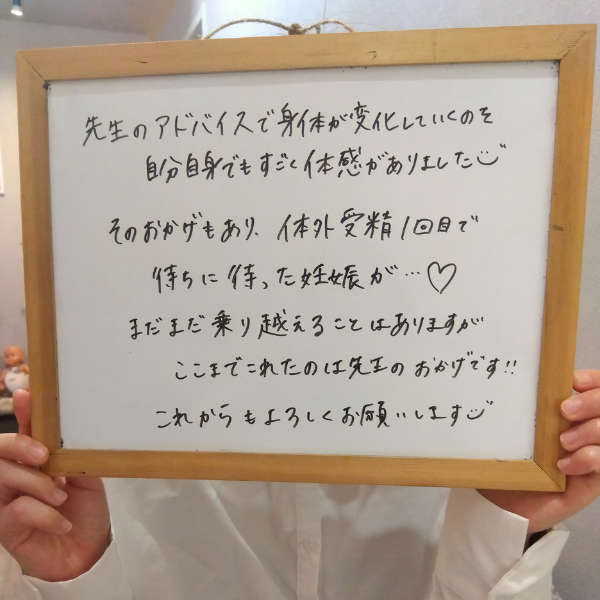 先生のアドバイスで身体が変化していくのを
自分自身でもすごく体感がありました
そのおかげもあり、体外受精1回目で
待ちに待った妊娠が…♡
まだまだ乗り越えることはありますが
ここまでこれたのは先生のおかげです!!
これからもよろしくお願いします